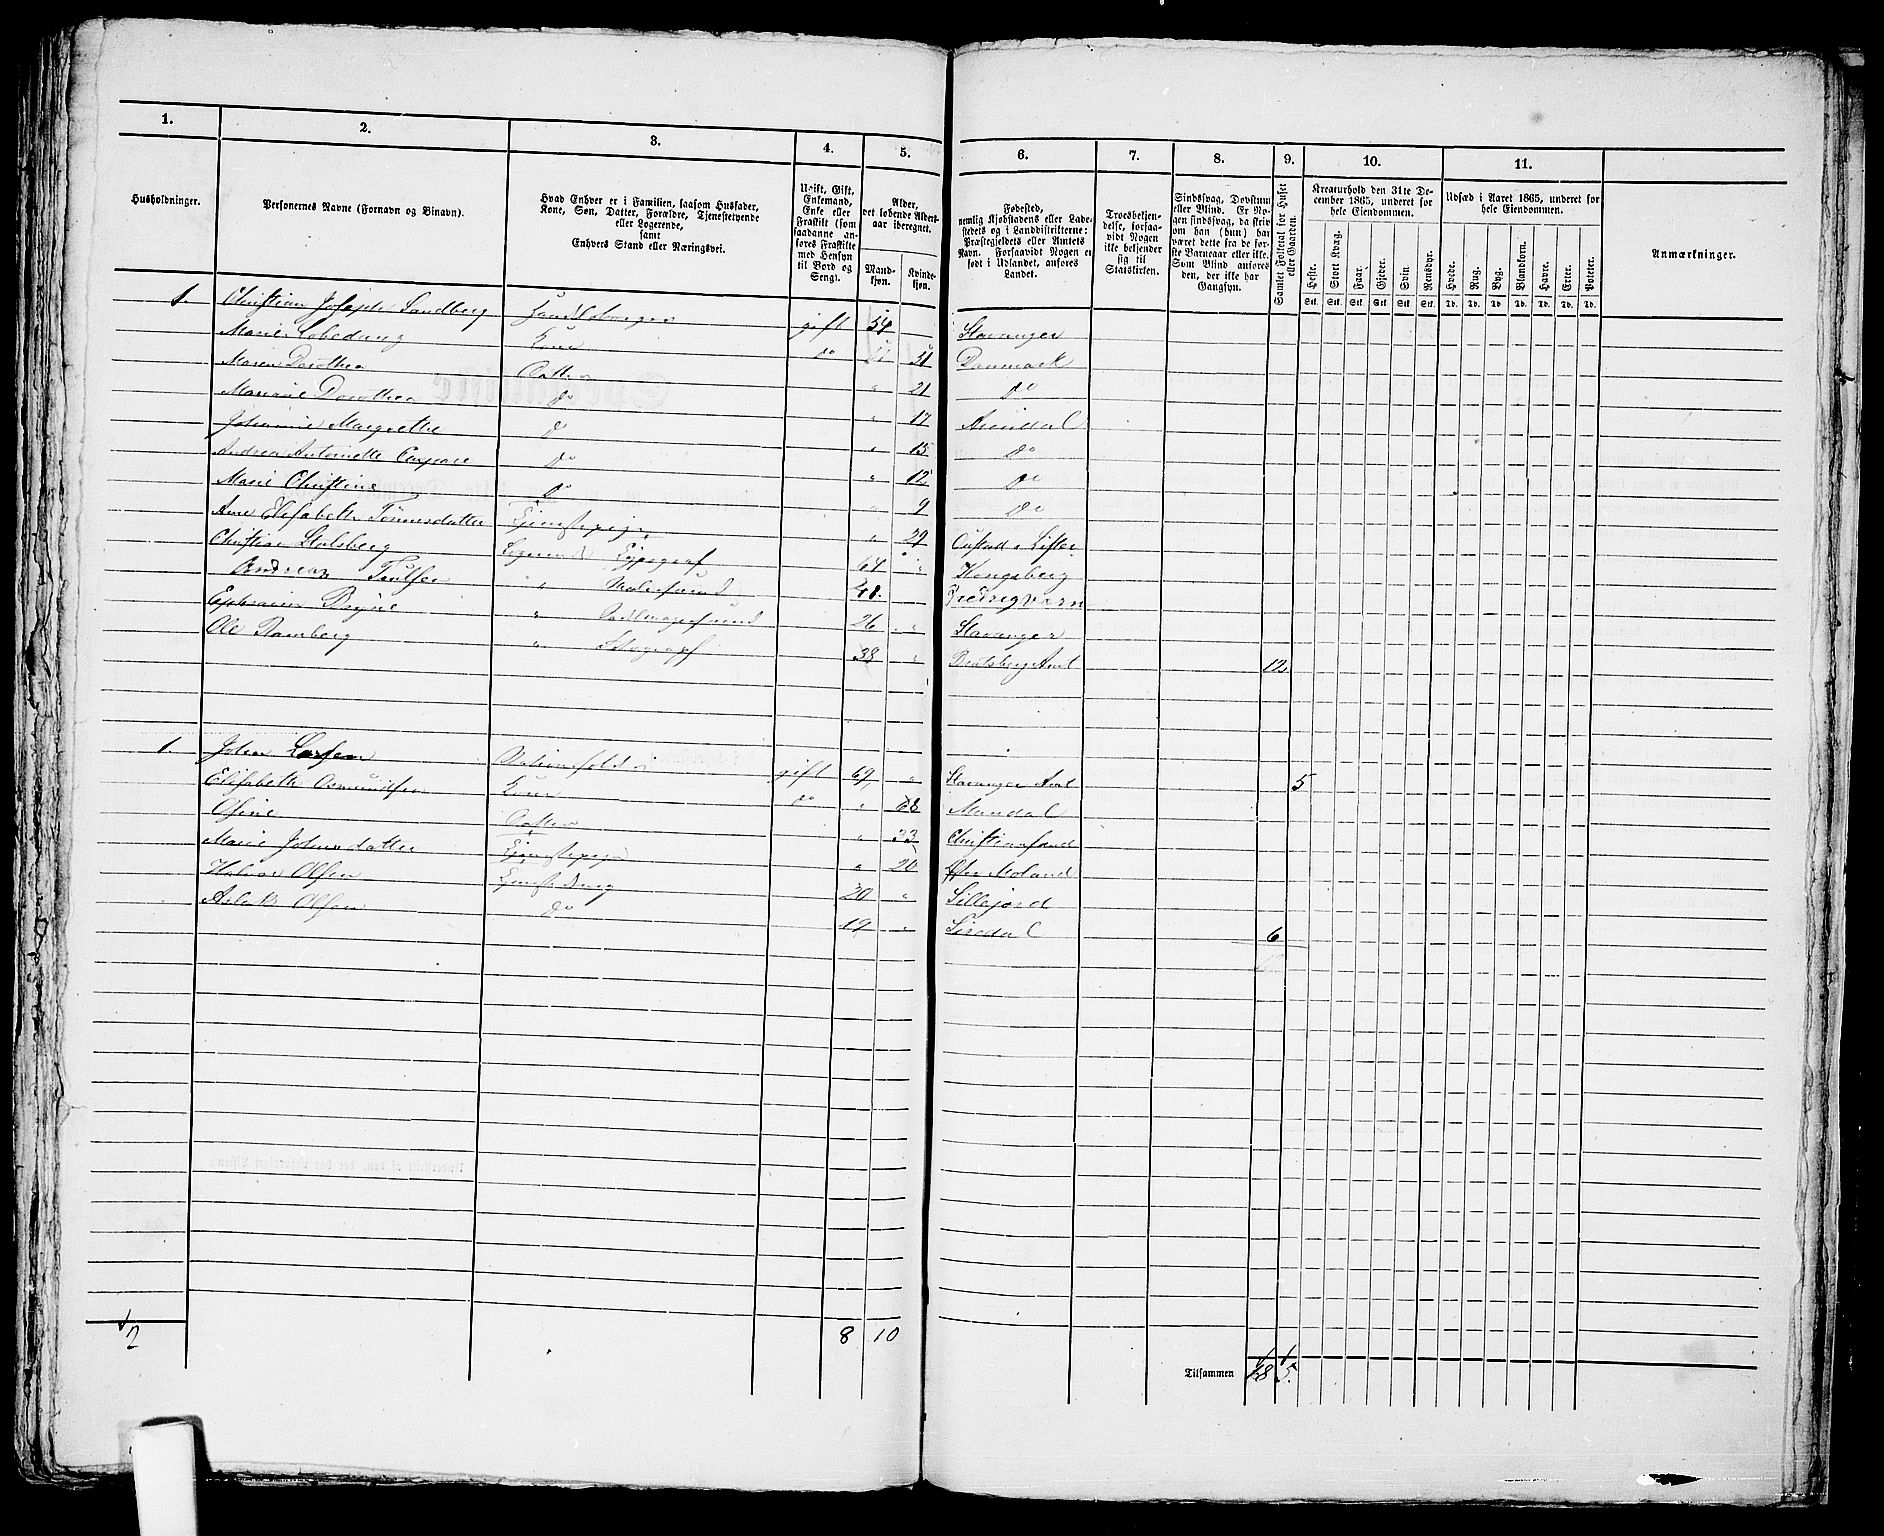 1. 2. 3. 4. 5. 6. 7. 8. 9. 10. 11.
Husholdninger.
Personernes Navne (Fornavn og Binavn).
Hvad Enhver er i Familien, saasom Husfader,
Kone, Søn, Datter, Forældre, Tjenestetyende
eller Logerende,
samt
Enhvers Stand eller Næringsvei.
Ugift, Gift,
Enkemand,
Enke eller
Fraskilt (som
saadanne an-
føres Fraskilte
med Hensyn
til Bord og
Seng).
Alder,
det løbende Alders-
aar iberegnet.
Mand-
kjøn.
Kvinde-
kjøn.
Fødested,
nemlig Kjøbstadens eller Lade-
stedets og i Landdistrikterne:
Præstegjeldets eller Amtets
Navn. Forsaavidt Nogen er
født i Udlandet, anføres
Landet.
Troesbekjen-
delse, forsaa-
vidt Nogen
ikke bekjender
sig til
Statskirken.
Sindssvag, Døvstum
eller Blind. Er No-
gen sindssvag, da skriv
om han (hun) har
været dette fra de før-
ste Barneaar eller ikke.
Som Blind anføres
den, der ikke har
Gangsyn.
Samlet Folketal for Huset
eller Gaarden.
Kreaturhold den 31te De-
cember 1865, underet for
hele Eiendommen.
Heste. Stort Kvæg. Faar. Gjeder. Svin. Rensdyr.
Stk. Stk. Stk. Stk. Stk. Stk.
Udsæd i Aaret 1865, underet for
hele Eiendommen.
Hvede. Rug. Byg. Blandkorn. Havre. Erter. Poteter.
Td. Td. Td. Td. Td. Td. Td.
Anmærkninger.
1. Christian Joseph Sandberg Handelsborger gift 54 Stavanger
Marie Lobedang Kone do 51 Danmark
Maren Dorothea Datter " 21 do
Mariane Dorothea do " 17 Arendal
Johanne Margrethe do " 15 do
Andrea Antonette do " 12 do
Marie Christine do " 9 do
Ane Elisabeth Tønnesdatter Tjenestepige " 29 Lister
Christian Stalsberg Logerende Typograf 64 " Kongsberg
Andreas " Malersvend 48. Fredrigværn
Ephraim Bryne " Sadlmagersvend 26 " Stavanger
Ole Ramberg " 38 " Bratsberg Amt 12
1. John Larsen gift 69 " Stavanger Amt 5
Elisabeth Osmundsen Kone do " 68 Mandal
Datter " 33 Christianssand
Marie Johnsdatter Tjenestepige " 20 Øster Moland
Halvor Olsen Tjenestedreng 20 " Sillejord
Aslak Olsen do 19 " Siredal 6
2 8 10
Tilsammen 18 5.